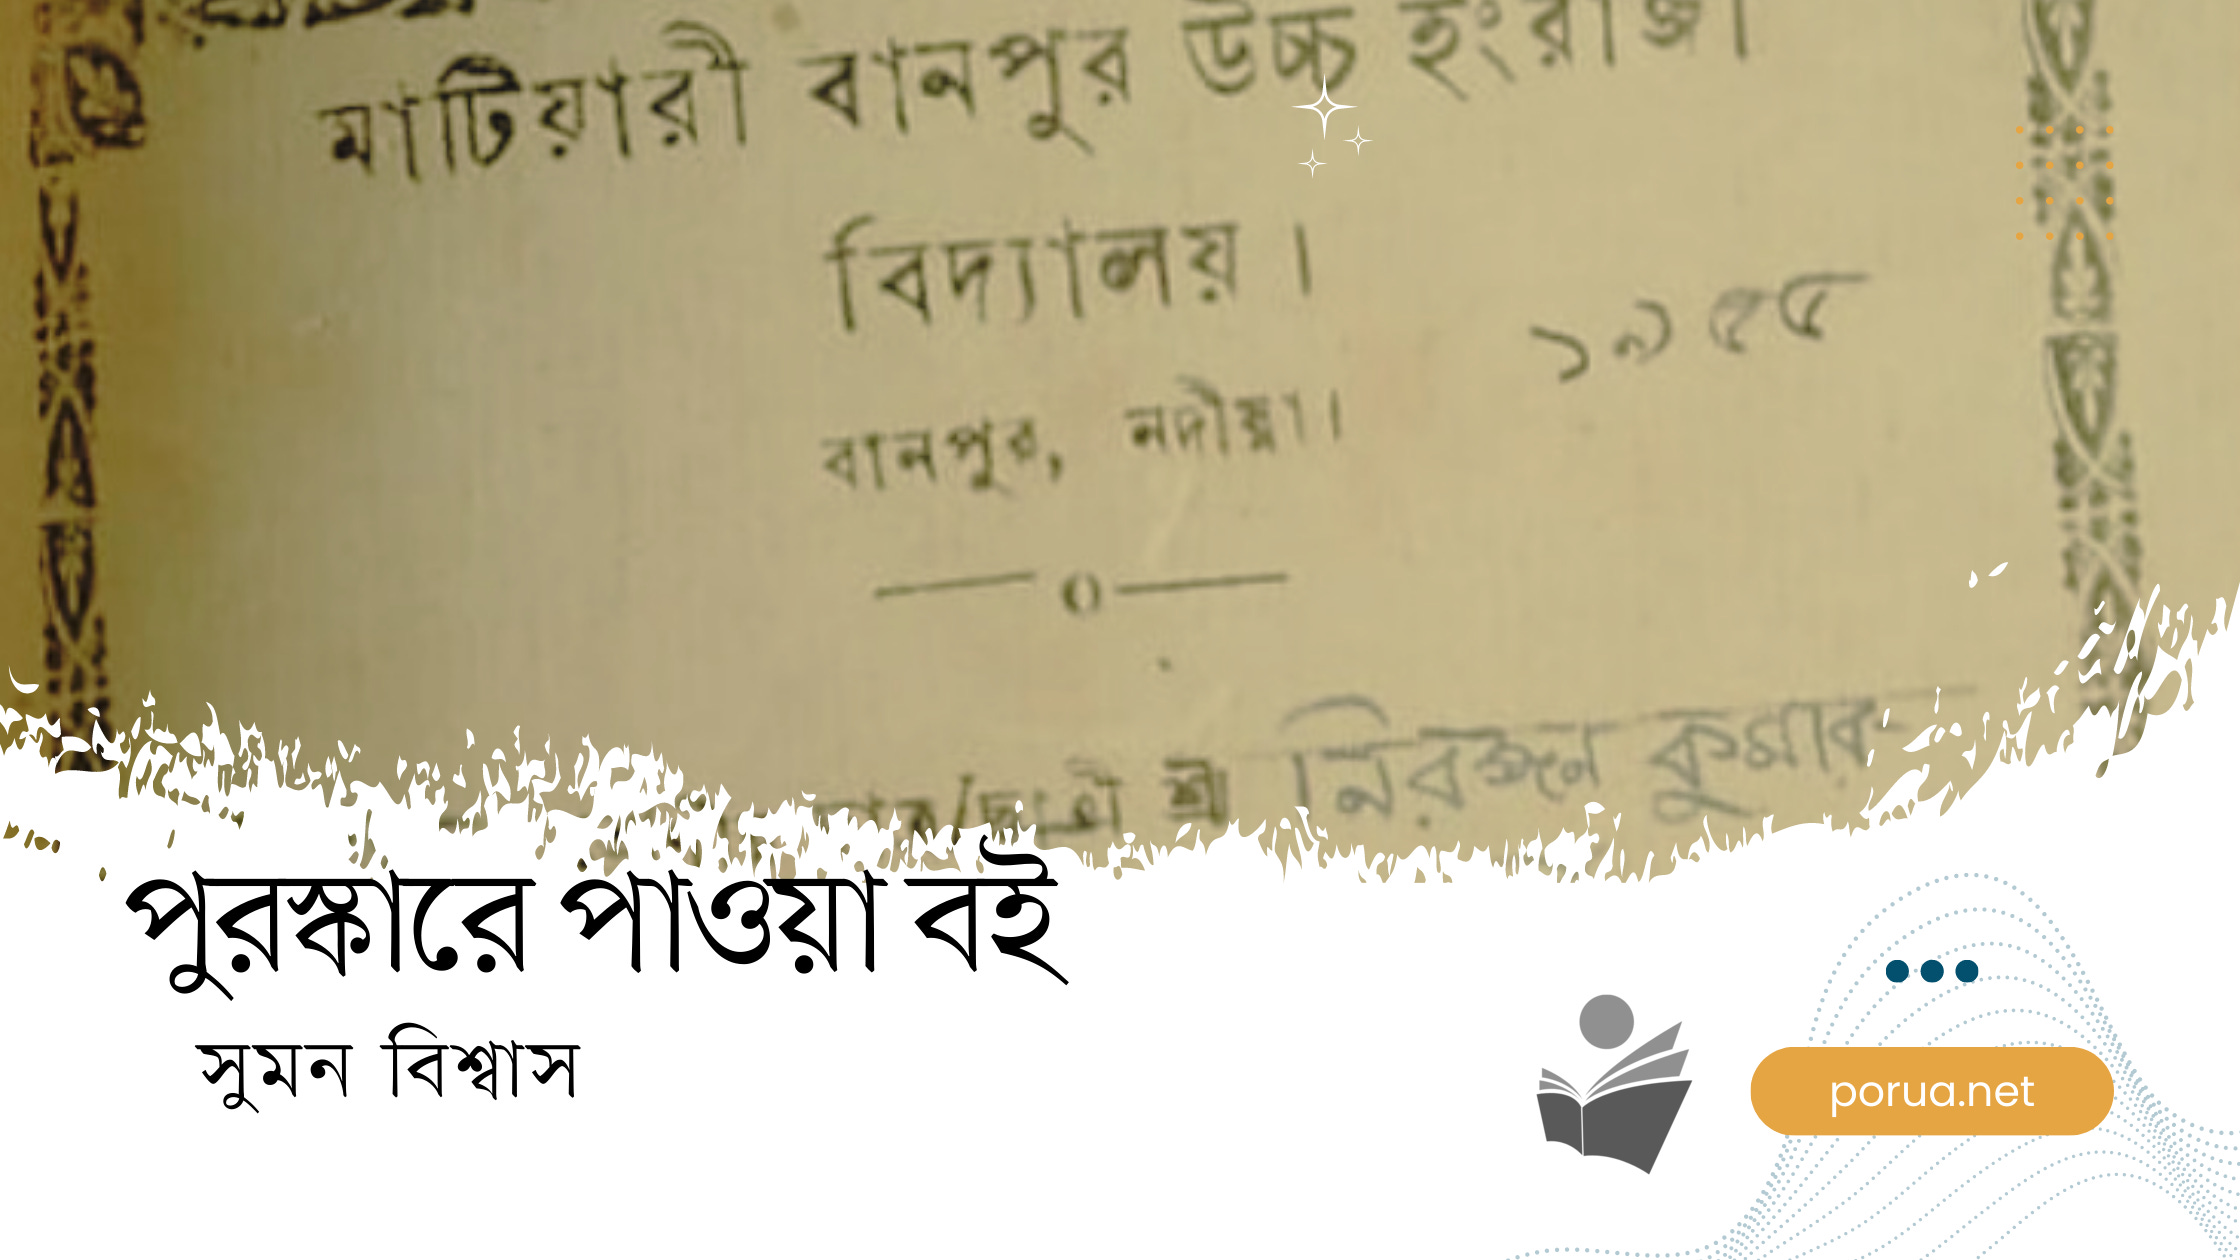 মাটিয়ারী বানপুর উচ্চ ইংরাজী
বিদ্যালয়।
১৯৫৫
বানপুর, নদীয়া।
শ্রী নিরঞ্জন কুমার
পুরস্কারে পাওয়া বই
সুমন বিশ্বাস
porua.net